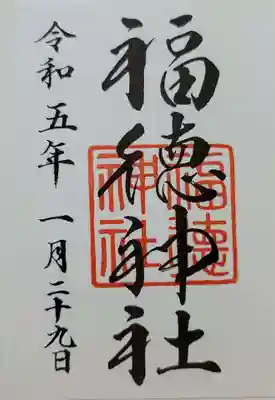 福徳神社
福德神社
令和五年 一月二十九日